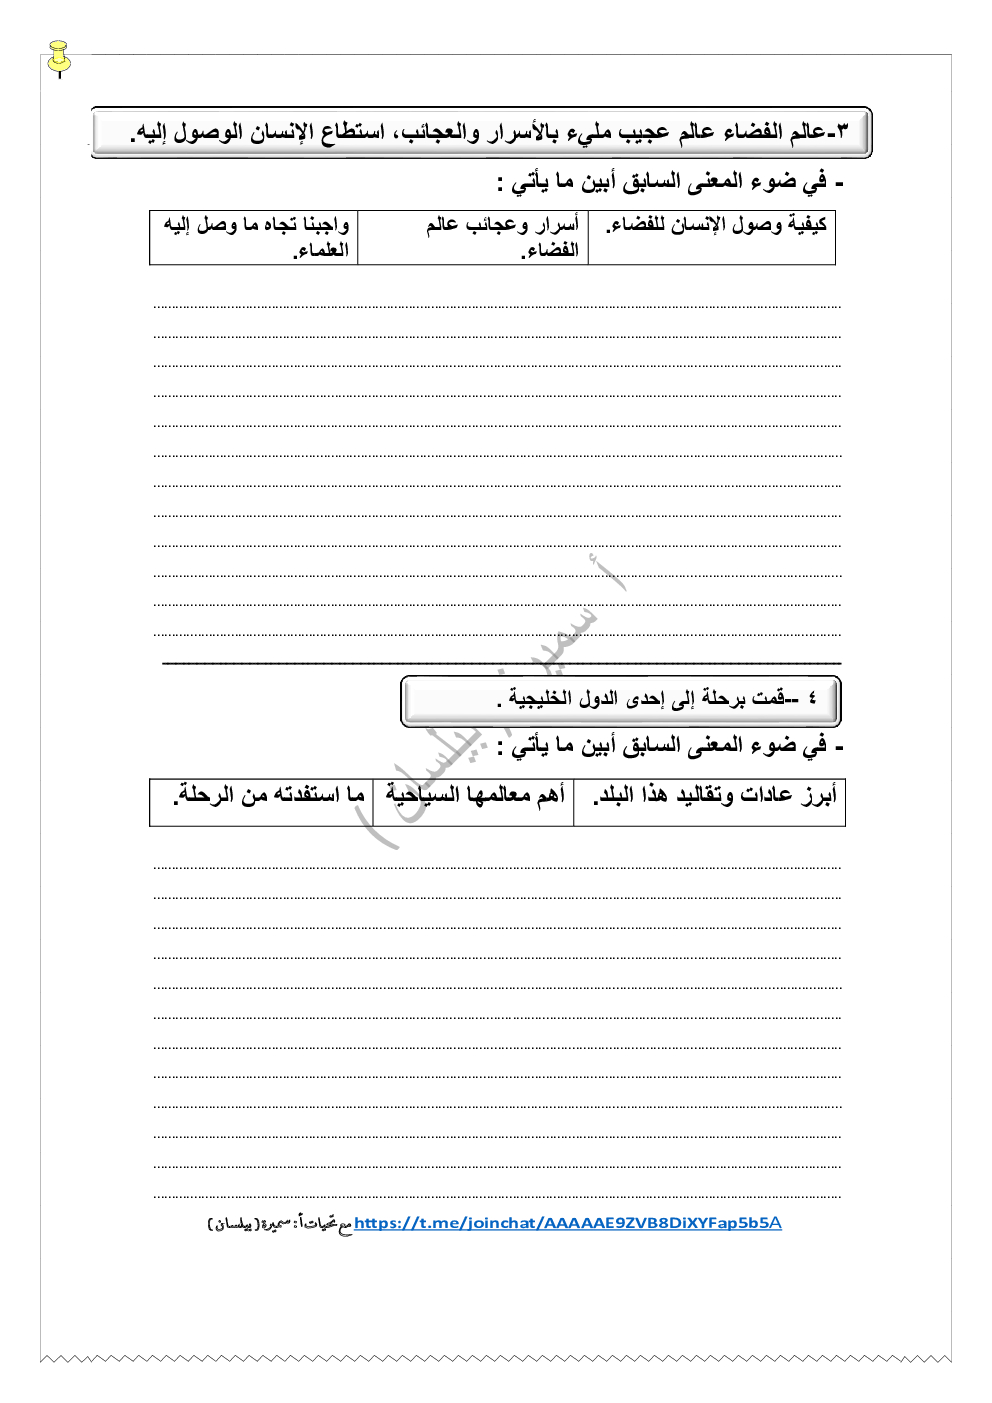 ٣-عالم الفضاء عالم عجيب مليء بالأسرار والعجائب، استطاع الإنسان الوصول إليه.
- في ضوء المعنى السابق أبين ما يأتي :
كيفية وصول الإنسان للفضاء.
أسرار وعجائب عالم
الفضاء.
واجبنا تجاه ما وصل إليه
العلماء.
٤ --قمت برحلة إلى إحدى الدول الخليجية .
- في ضوء المعنى السابق أبين ما يأتي :
أبرز عادات وتقاليد هذا البلد.
أهم معالمها السياحية
ما استفدته من الرحلة.
https://t.me/joinchat/AAAAAE9ZVB8DiXYFap5b5A مع تحيات أ: سميرة( بيلسان )
أ سميرة ( بيلسان )